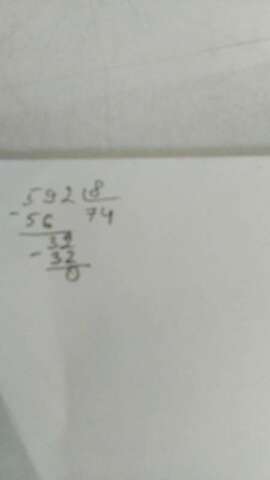 592 8
- 56 74
32
- 32
0